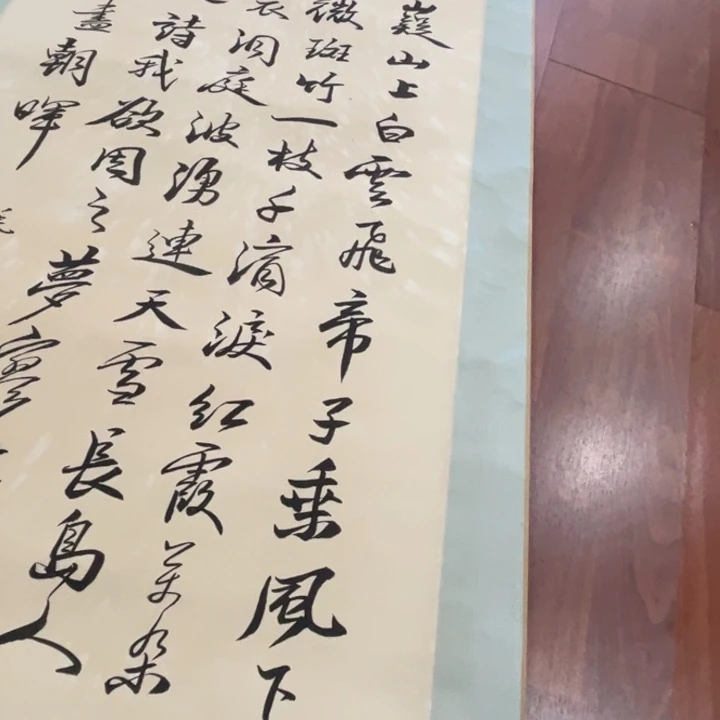 嶷山上白雲飛帝子乘風下
微斑竹一枝千滴淚紅霞萬朵
衣洞庭波湧連天雪長島人
詩我欲因之夢寥
盡朝暉